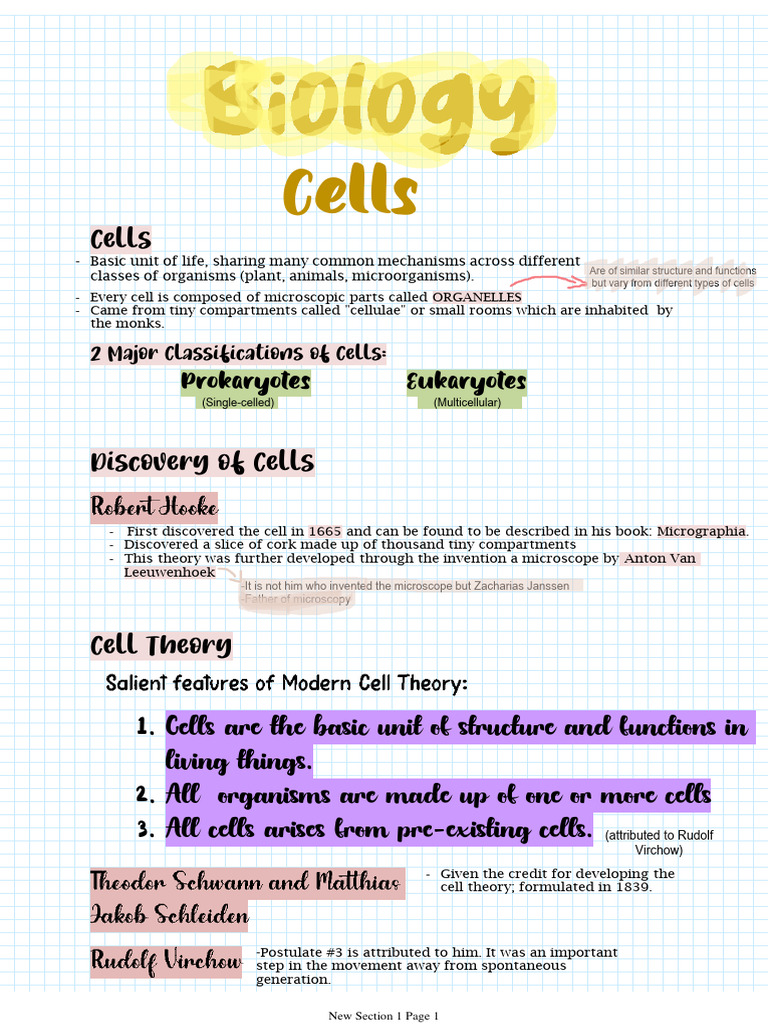 Biology
Cells
Cells
- Basic unit of life, sharing many common mechanisms across different
classes of organisms (plant, animals, microorganisms).
Are of similar structure and functions
but vary from different types of cells
- Every cell is composed of microscopic parts called ORGANELLES
- Came from tiny compartments called "cellulae" or small rooms which are inhabited by
the monks.
2 Major Classifications of Cells:
Prokaryotes
(Single-celled)
Eukaryotes
(Multicellular)
Discovery of Cells
Robert Hooke
- First discovered the cell in 1665 and can be found to be described in his book: Micrographia.
- Discovered a slice of cork made up of thousand tiny compartments
- This theory was further developed through the invention a microscope by Anton Van
Leeuwenhoek
-It is not him who invented the microscope but Zacharias Janssen
-Father of microscopy
Cell Theory
Salient features of Modern Cell Theory:
1. Cells are the basic unit of structure and functions in
living things.
2. All organisms are made up of one or more cells
3. All cells arises from pre-existing cells.
(attributed to Rudolf
Virchow)
Theodor Schwann and Matthias
Jakob Schleiden
- Given the credit for developing the
cell theory; formulated in 1839.
Rudolf Virchow
-Postulate #3 is attributed to him. It was an important
step in the movement away from spontaneous
generation.
New Section 1 Page 1